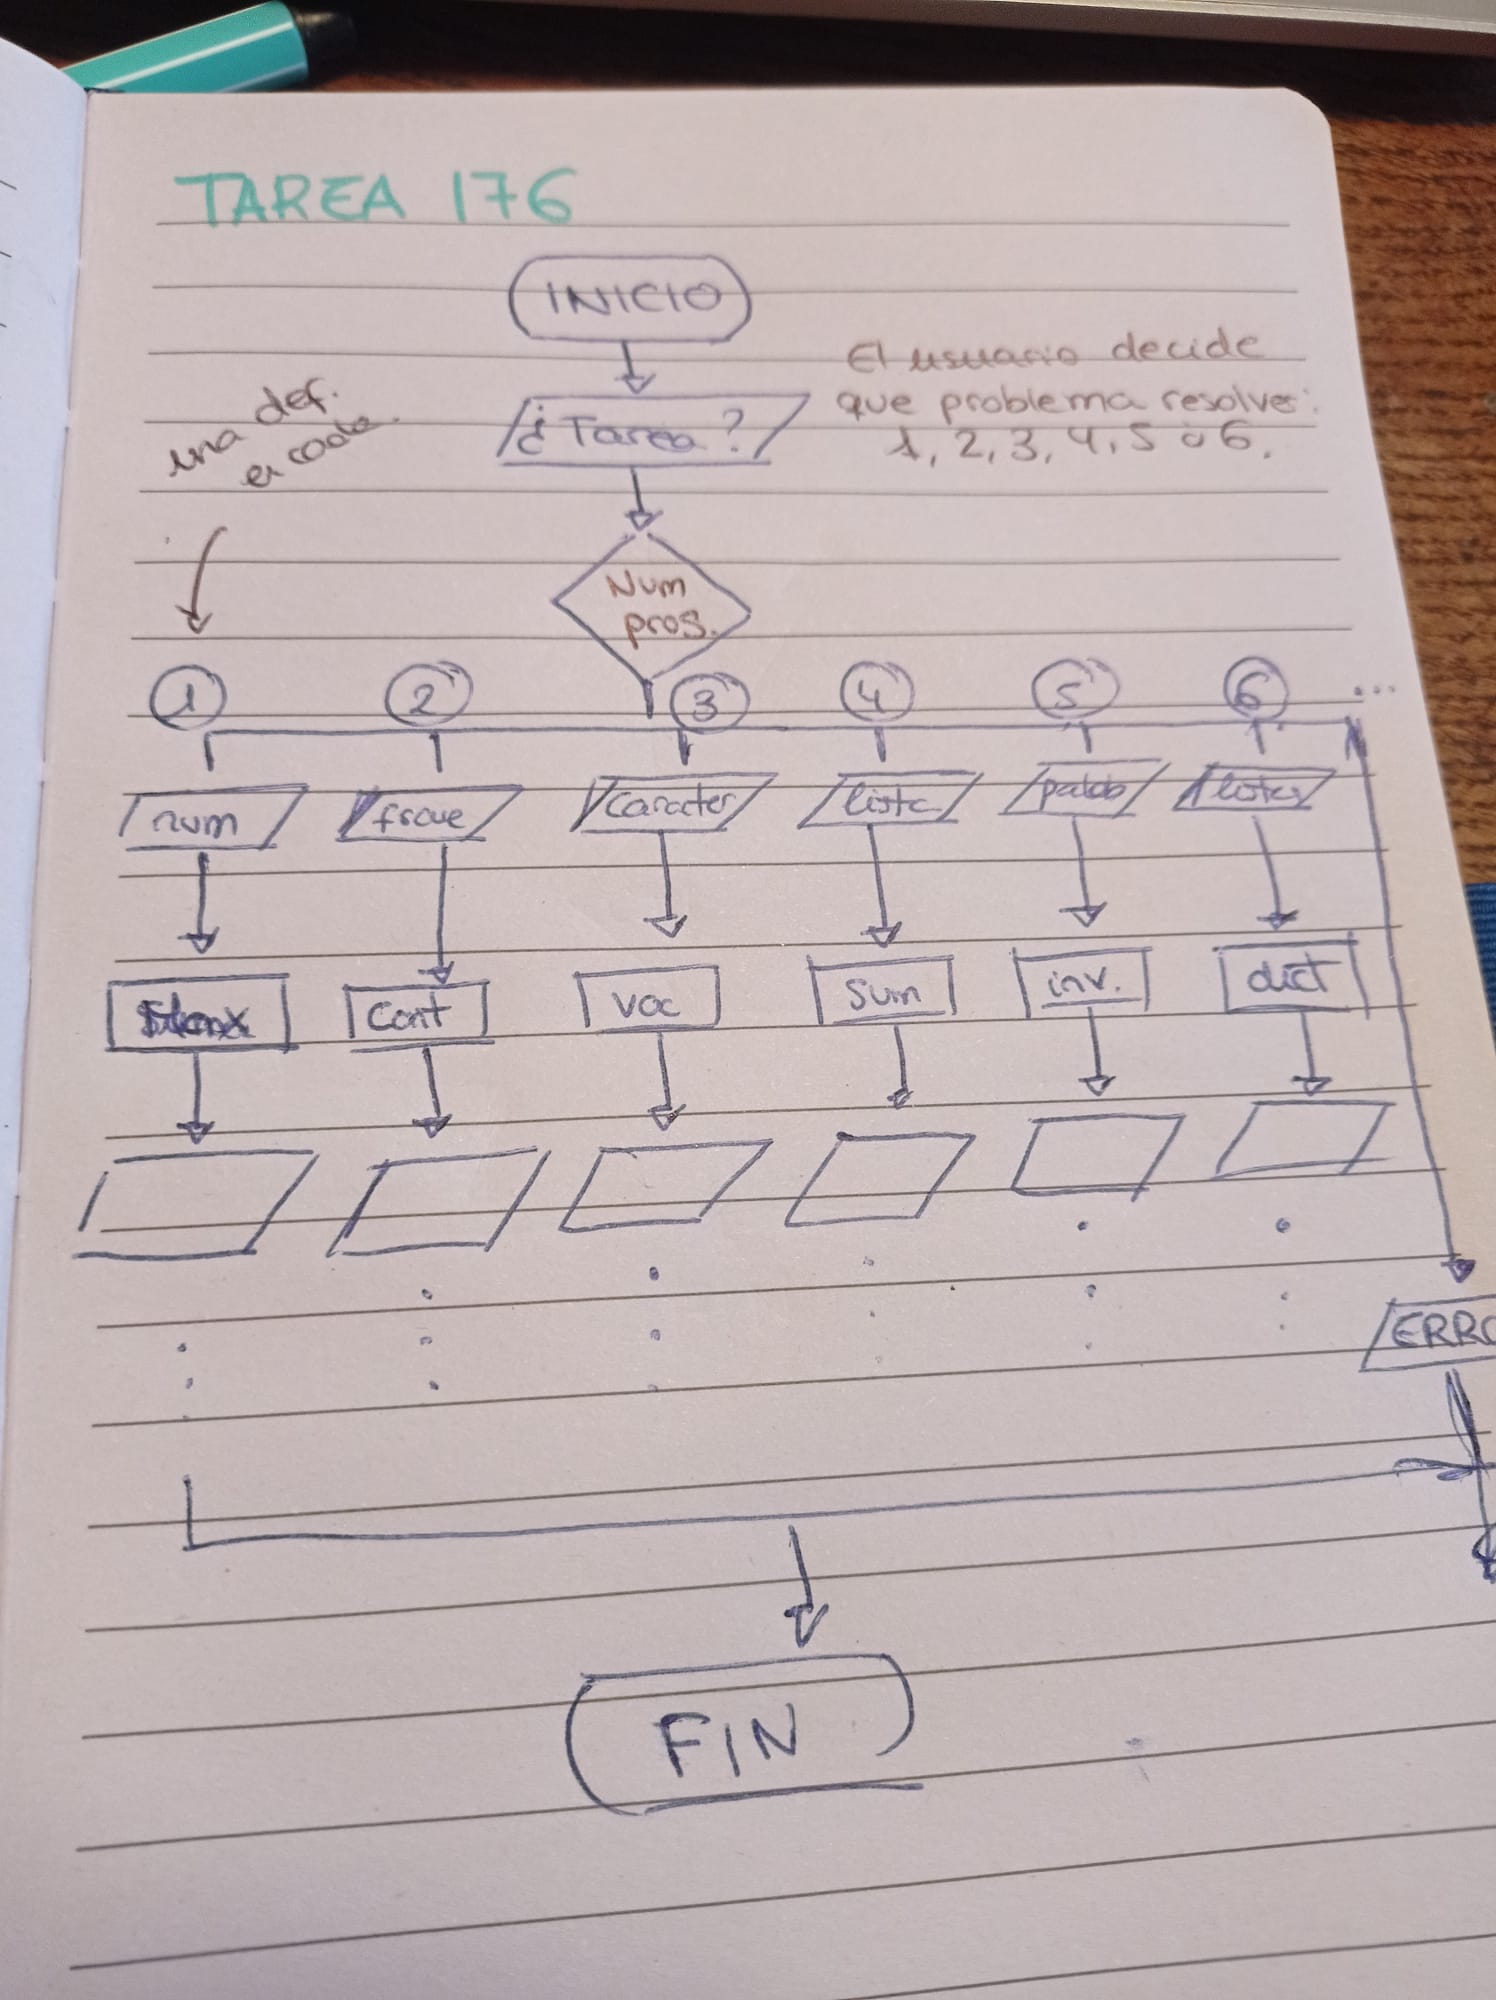 TAREA 176
INICIO
El usuario decide
que problema resolver:
1, 2, 3, 4, 5 ó 6.
¿Tarea?
una def.
en cada.
Num
prog.
1 2 3 4 5 6 ...
num frase caracter lista palab lista
Cont voc sum inv. dict
ERRO
FIN